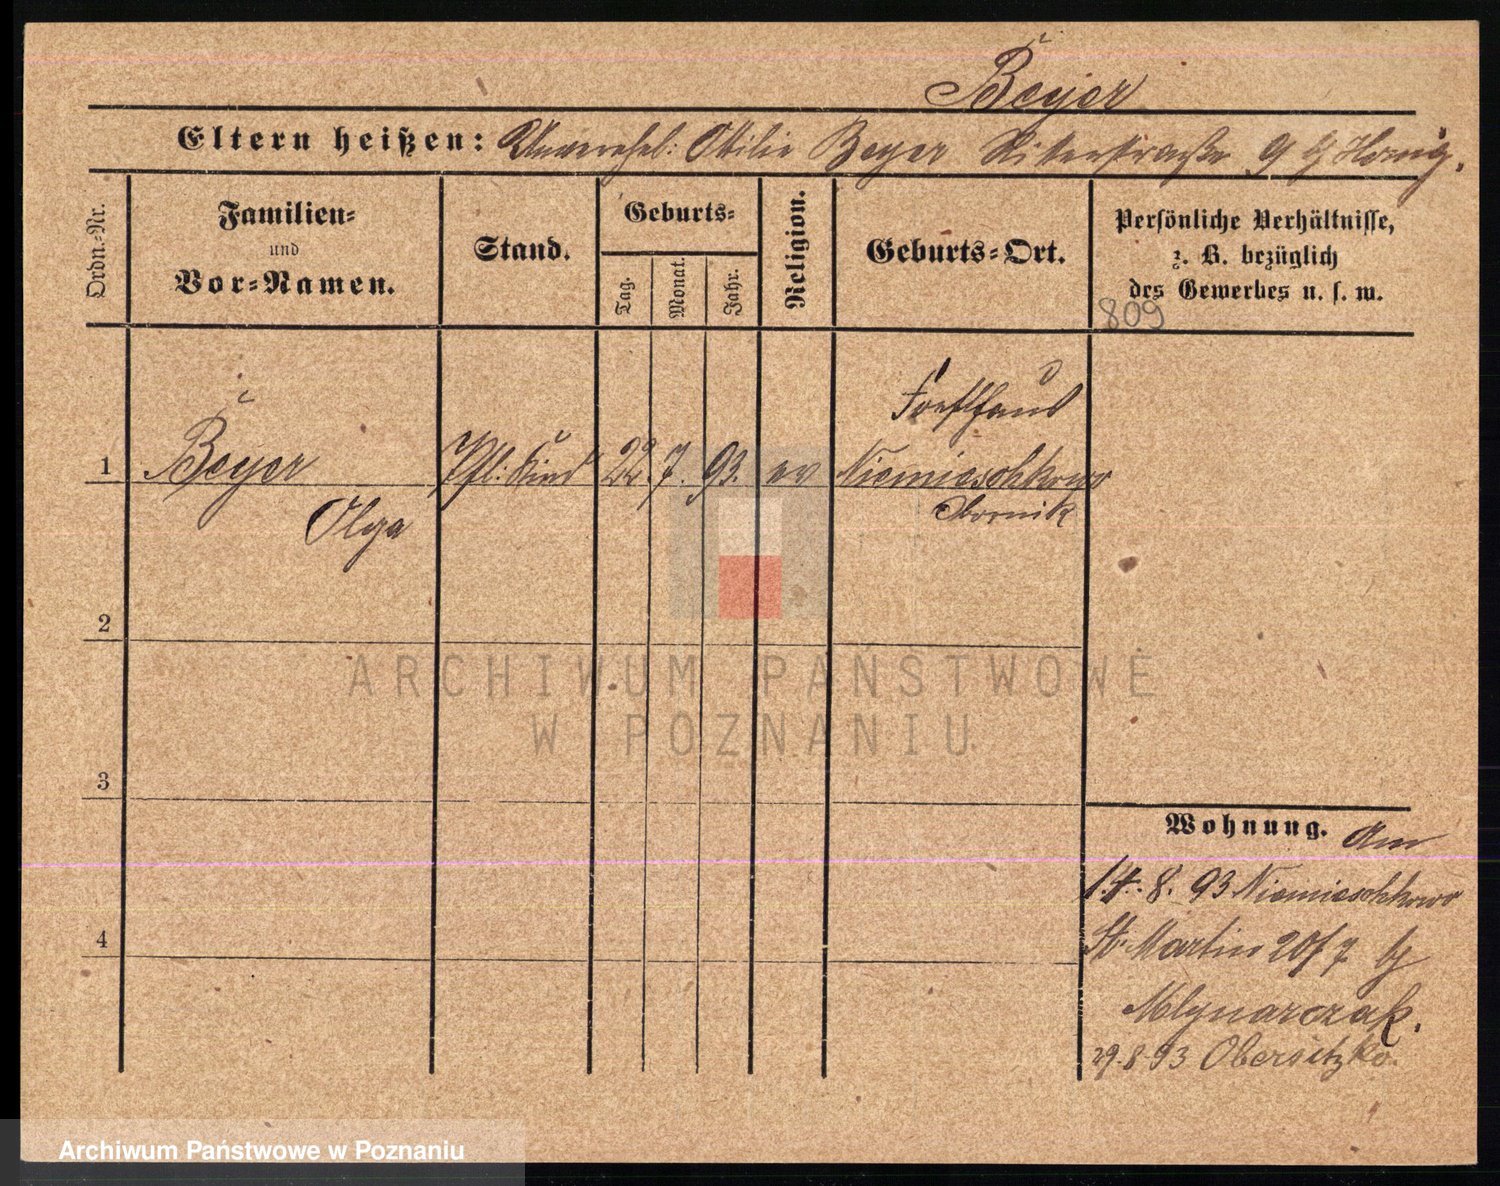 Beyer
Eltern heißen: Unverehel: Ottilie Beyer Ritterstraße 9 b/ Hornig.
Ordn.-Nr.
Familien-
und
Vor-Namen.
Stand.
Geburts-
Tag.
Monat.
Jahr.
Religion.
Geburts-Ort.
Persönliche Verhältnisse,
z. B. bezüglich
des Gewerbes u. s. w.
809
Forsthaus
1 Beyer Pfl: Kind 22. 7. 93. ev Niemieschkowo
Olga Obornik
2
ARCHIWUM PAŃSTWOWE
W POZNANIU
3
Wohnung. Am
14. 8. 93 Niemieschkowo
4
St. Martin 20/7 b/
Mlynarczak.
29. 8. 93 Obersitzko.
Archiwum Państwowe w Poznaniu